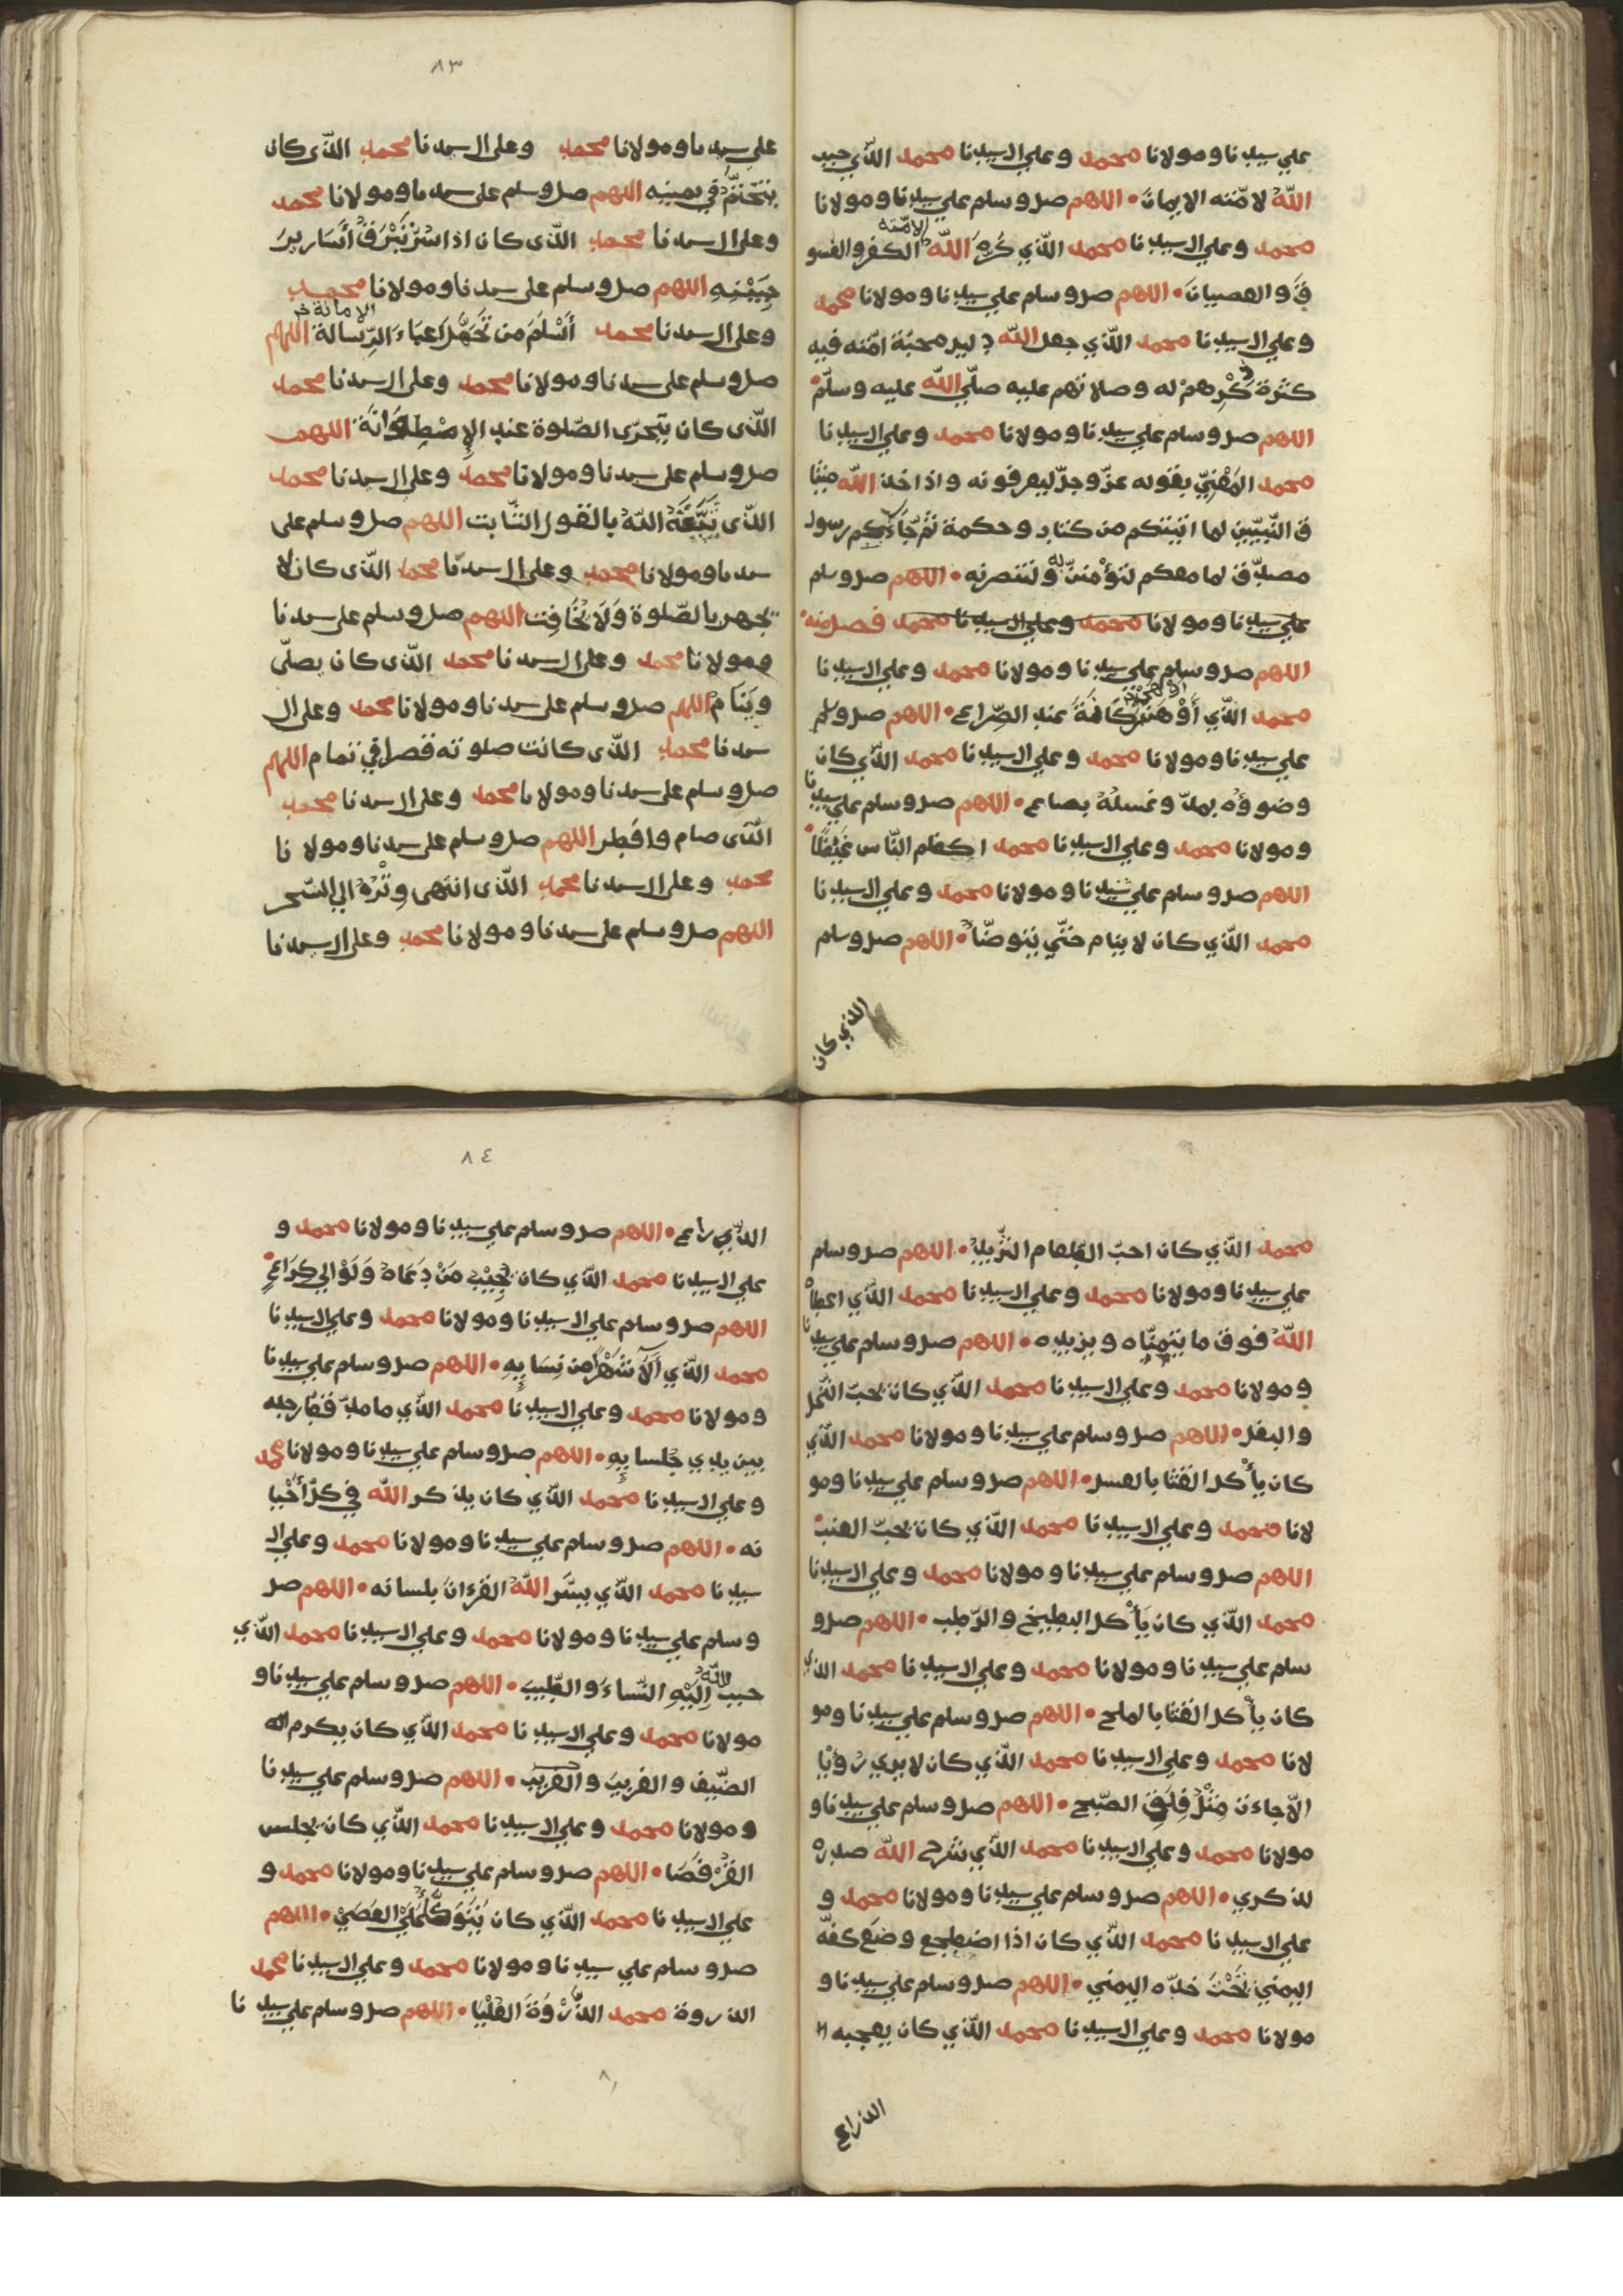 علي سيدنا ومولانا محمد وعلي ال سيدنا محمد الذي حبب
اللّهُ لامّته الايمانَ • اللهم صل وسلم علي سيدنا ومولانا
محمد وعلي ال سيدنا محمد الذي كرّهَ اللهُ لامّته الكفر والفسو
قَ والعصيانَ • اللهم صل وسلم علي سيدنا ومولانا محمد
وعلي ال سيدنا محمد الذي جعل الله دليل محبّة امّته فيه
كثرة ذكرهم له وصلاتهم عليه صلّي الله عليه وسلّم •
اللهم صل وسلم علي سيدنا ومولانا محمد وعلي ال سيدنا
محمد المَعْنِيّ بقوله عزّ وجلّ ليعرفونه واذ اخذ الله ميثا
ق النّبيّين لما اتيتكم من كتاب وحكمة ثم جَاءَكم رسول
مصدّق لما معكم لتؤمننّ به ولتنصرنه • اللهم صل وسلم
علي سيدنا ومولانا محمد وعلي ال سيدنا محمد فصل منه •
اللهم صل وسلم علي سيدنا ومولانا محمد وعلي ال سيدنا
محمد الذي أَوْهَنَ رُكَانَةَ عند الصّراع • اللهم صل وسلم
علي سيدنا ومولانا محمد وعلي ال سيدنا محمد الذي كان
وضوؤُه بمدّ وغسلُهُ بصاع • اللهم صل وسلم علي سيدنا
ومولانا محمد وعلي ال سيدنا محمد اكظم النّاس غَيْظًا •
اللهم صل وسلم علي سيدنا ومولانا محمد وعلي ال سيدنا
محمد الذي كان لا ينام حتّي يتوضّأ • اللهم صل وسلم
الذي كان
٨٣
على سيدنا ومولانا محمد وعلى ال سيدنا محمد الذى كان
يتختّم في يمينه اللهم صل وسلم على سيدنا ومولانا محمد
وعلى ال سيدنا محمد الذى كان اذا سُرّ تَبْرَقُ أَسَارِيرَ
جَبِيْنِهِ اللهم صل وسلم على سيدنا ومولانا محمد
وعلى ال سيدنا محمد أَسْلَمَ من تَحَمَّلَ اعباءَ الرّسالة الامانة اللهم
صل وسلم على سيدنا ومولانا محمد وعلى ال سيدنا محمد
الذى كان يتحرّى الصّلوة عند الاِسْطِوَانَة اللهم
صل وسلم على سيدنا ومولانا محمد وعلى ال سيدنا محمد
الذى ثَبَّتَهُ اللّهُ بالقول الثّابت اللهم صل وسلم على
سيدنا ومولانا محمد وعلى ال سيدنا محمد الذى كان لا
يجهر بالصّلوة وَلَا يُخَافِت اللهم صل وسلم على سيدنا
ومولانا محمد وعلى ال سيدنا محمد الذى كان يصلّى
ويَنَام اللهم صل وسلم على سيدنا ومولانا محمد وعلى ال
سيدنا محمد الذى كانت صلوته قصدا في تمام اللهم
صل وسلم على سيدنا ومولانا محمد وعلى ال سيدنا محمد
الذى صام وافطر اللهم صل وسلم على سيدنا ومولانا
محمد وعلى ال سيدنا محمد الذى انتهى وِتْرُهُ الي السّحر
اللهم صل وسلم على سيدنا ومولانا محمد وعلى ال سيدنا
محمد الذي كان احبّ الطّعام الثّريدُ • اللهم صل وسلم
علي سيدنا ومولانا محمد وعلي ال سيدنا محمد الذي اعطاهُ
اللّهُ فوق ما يتمنّاه ويزيده • اللهم صل وسلم علي سيدنا
ومولانا محمد وعلي ال سيدنا محمد الذي كان يحبّ
والبقل • اللهم صل وسلم علي سيدنا ومولانا محمد الذي
كان يأكل القثا بالعسل • اللهم صل وسلم علي سيدنا ومو
لانا محمد وعلي ال سيدنا محمد الذي كان يحبّ العنب •
اللهم صل وسلم علي سيدنا ومولانا محمد وعلي ال سيدنا
محمد الذي كان يَأكل البطيخ والرّطب • اللهم صل و
سلم علي سيدنا ومولانا محمد وعلي ال سيدنا محمد الذي
كان يأكل القثا بالملح • اللهم صل وسلم علي سيدنا ومو
لانا محمد وعلي ال سيدنا محمد الذي كان لا يري رؤيا
الّا جاءت مِثْلَ فَلَقِ الصّبح • اللهم صل وسلم علي سيدنا و
مولانا محمد وعلي ال سيدنا محمد الذي شرح الله صدرهُ
للذكري • اللهم صل وسلم علي سيدنا ومولانا محمد و
علي ال سيدنا محمد الذي كان اذا اضطجع وضَع كفّه
اليمني تَحْتَ خدّه اليمني • اللهم صل وسلم علي سيدنا و
مولانا محمد وعلي ال سيدنا محمد الذي كان يعجبه
الذراع
٨٤
الذراع • اللهم صل وسلم علي سيدنا ومولانا محمد و
علي ال سيدنا محمد الذي كان يُجِيْبُ مَنْ دَعَاهُ وَلَوْ الي كُرَاعٍ •
اللهم صل وسلم علي ال سيدنا ومولانا محمد وعلي ال سيدنا
محمد الذي آلَا شَهْرًا من نِسَايِهِ • اللهم صل وسلم علي سيدنا
ومولانا محمد وعلي ال سيدنا محمد الذي ما مدّ قطّ رجله
بين يدي جلسايِهِ • اللهم صل وسلم علي سيدنا ومولانا محمد
وعلي ال سيدنا محمد الذي كان يذكر الله في كلّ أَحْيا
نه • اللهم صل وسلم علي سيدنا ومولانا محمد وعلي ال
سيدنا محمد الذي يسَّر اللّهُ القرءانَ بلسانه • اللهم صل
وسلم علي سيدنا ومولانا محمد وعلي ال سيدنا محمد الذي
حبب اللّهُ اِلَيْهِ النّساءَ والطّيبَ • اللهم صل وسلم علي سيدنا و
مولانا محمد وعلي ال سيدنا محمد الذي كان يكرم
الضّيف والغريبَ والقريبَ • اللهم صل وسلم علي سيدنا
ومولانا محمد وعلي ال سيدنا محمد الذي كان يجلس
القُرْفُصَا • اللهم صل وسلم علي سيدنا ومولانا محمد و
علي ال سيدنا محمد الذي كان يَتَوَكَّأُ عَلَي العَصَيْ • اللهم
صل وسلم علي سيدنا ومولانا محمد وعلي ال سيدنا محمد
الذروة محمد الذّرْوَةَ العُلْيَا • اللهم صل وسلم علي سيدنا